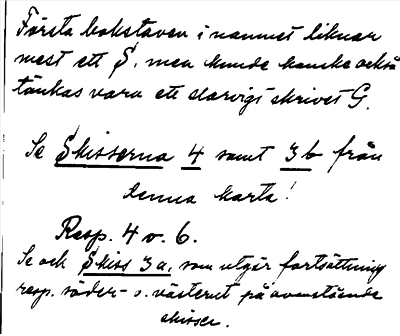 Första bokstaven i namnet liknar
mest ett S, men kunde kanske också
tänkas vara ett slarvigt skrivet G.
Se Skisserna 4 samt 3b från
denna karta!
Resp. 4 o. 6.
Se och Skiss 3a, som utgör fortsättning
resp. söder- o. västerut på ovanstående
skisser.